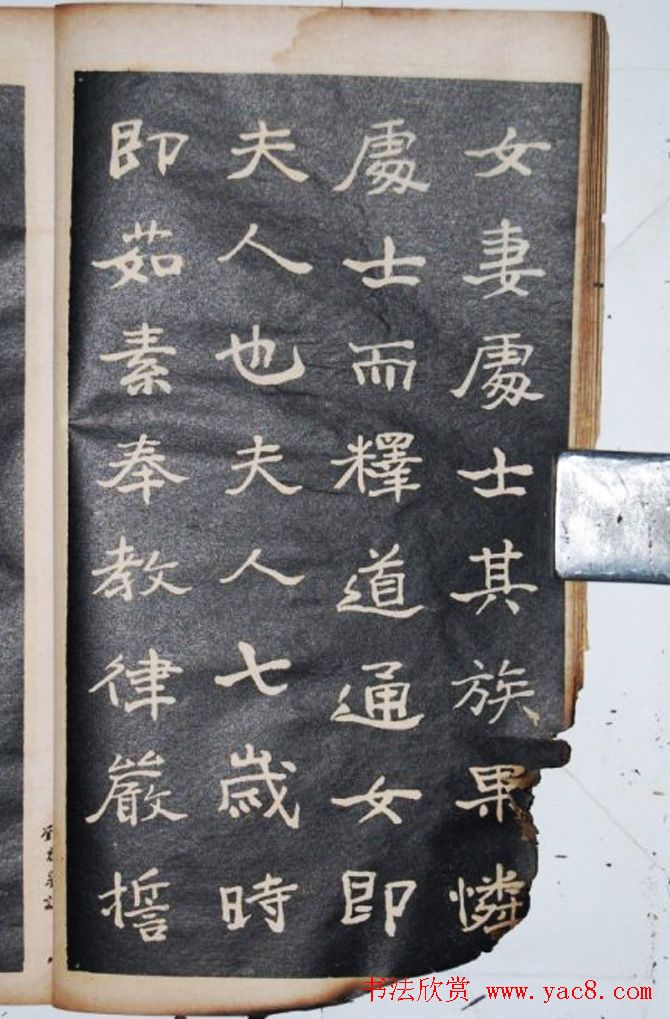 女妻處士其族果憐
處士而釋道通女即
夫人也夫人七歲時
即茹素奉教律嚴㨗
书法欣赏 www.yac8.com